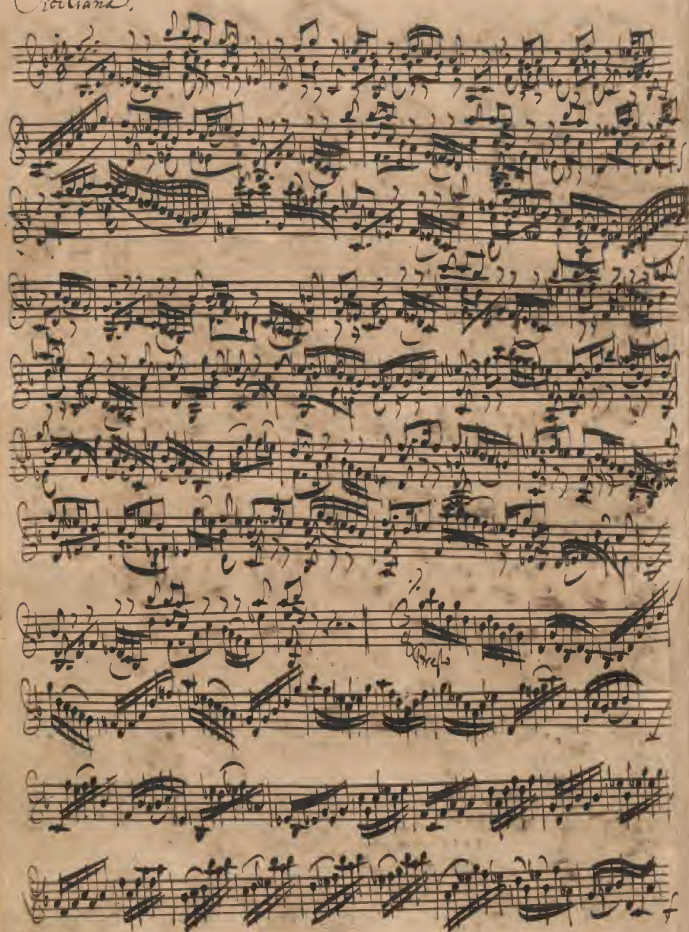 Siciliana.
Presto